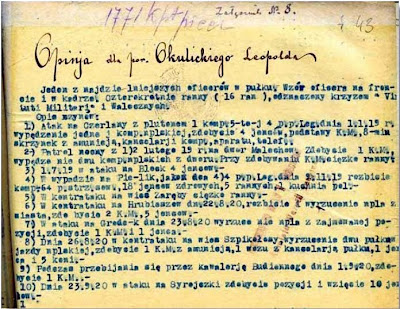 177/kpt piech
Załącznik Nr. 5.
43
Opinja dla por. Okulickiego Leopolda
Jeden z najdzielniejszych oficerów w pułku. Wzór oficera na fron-
cie i w kadrze. Czterokrotnie ranny (16 ran), odznaczony krzyżem "Vir
tuti Militari" i Walecznych.
Opis czynów:
1) Atak na Czerlany z plutonem 1 komp. 5-tej 4 p.p. Leg. dnia 1.1.19 r.
wypędzenie dwóch komp. ukpińskich, zdobycie 4 jeńców, podstawy K.M., 8-miu
skrzynek z amunicją, kancelarji komp., aparatu telef.
2) Patrol nocny z 1)2 lutego 19 r. na dwór Małochów. Zdobycie 1 K.M.
wypędzenie dwu komp. z dworu. Przy zdobywaniu K.M. ciężko ranny.
3) 1.7.19 w ataku na Błesk 4 jeńców.
4) W wypadzie na dnia 11.19 rozbicie
komp. 64 postrzelonych, 18 jeńców zdrowych, 5 rannych i kuchnia poln.
5) W kontrataku na wieś Zaręby ciężko ranny.
6) W kontrataku na Hrubieszów dnia 22.8.20, rozbicie i wyrzucenie npla z
miasta, zdobycie 2 K.M. 5 jeńców.
7) W ataku na Gródek dnia 23.8.20 wyrzucenie npla z zajmowanej po-
zycji, zdobycie 1 K.M. i 1 jeńca.
8) Dnia 26.8.20 w kontrataku na wieś Szpikołosy, wyrzucenie dwu pułków
jazdy nplskiej, zdobycie 1 K.M. z amunicją, 1 wozu z kancelarją pułku, 1 jeń-
ca i 5 koni.
9) Podczas przebijania się przez kawalerję Budiennego dnia 1.9.20, zdo-
bycie 1 K.M.
10) Dnia 23.9.20 w ataku na Syrojeżki zdobycie pozycji i wzięcie 10 jeń
ców.